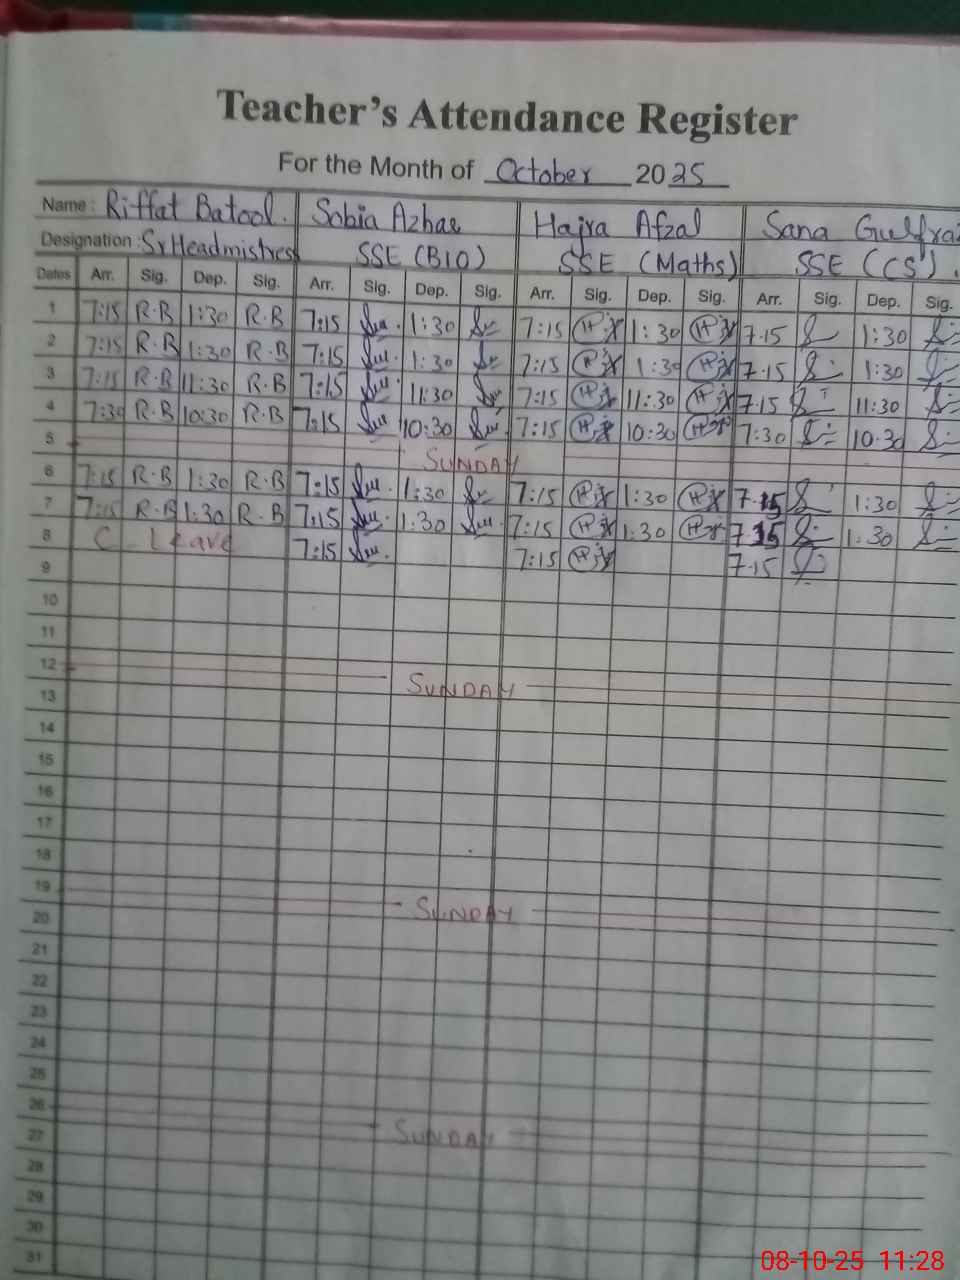 Teacher's Attendance Register
For the Month of October 2025
Name: Riffat Batool. Sobia Azhar Hajra Afzal Sana Gulfraz
Designation: Sr Headmistress SSE (BIO) SSE (Maths) SSE (CS).
Dates Arr. Sig. Dep. Sig. Arr. Sig. Dep. Sig. Arr. Sig. Dep. Sig. Arr. Sig. Dep. Sig.
1 7:15 R.B 1:30 R.B 7:15 1:30 7:15 1:30 7.15 1:30
2 7:15 R.B 1:30 R.B 7:15 1:30 7:15 1:30 7.15 1:30
3 7:15 R.B 11:30 R.B 7:15 11:30 7:15 11:30 7.15 11:30
4 7:30 R.B 10:30 R.B 7:15 10:30 7:15 10:30 7:30 10.30
5 SUNDAY
6 7:15 R.B 1:30 R.B 7:15 1:30 7:15 1:30 7.15 1:30
7 7:15 R.B 1:30 R.B 7:15 1:30 7:15 1:30 7.15 1.30
8 C. Leave 7:15 7:15 7.15
9
10
11
12 SUNDAY
13
14
15
16
17
18
19 SUNDAY
20
21
22
23
24
25
26 SUNDAY
27
28
29
30
31
08-10-25 11:28